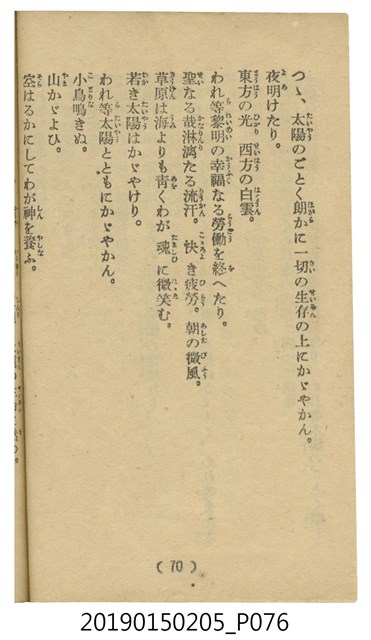 つゝ、太陽のごとく朗かに一切の生存の上にかゞやかん。
夜明けたり。
東方の光　西方の白雲。
われ等黎明の幸福なる勞働を終へたり。
聖なる哉淋漓たる流汗。快き疲勞。朝の微風。
草原は海よりも靑くわが魂に微笑む。
若き太陽はかゞやけり。
われ等太陽とともにかゞやかん。
小鳥鳴きぬ。
山かゞよひ。
空はるかにしてわが神を養ふ。
(70)
20190150205_P076